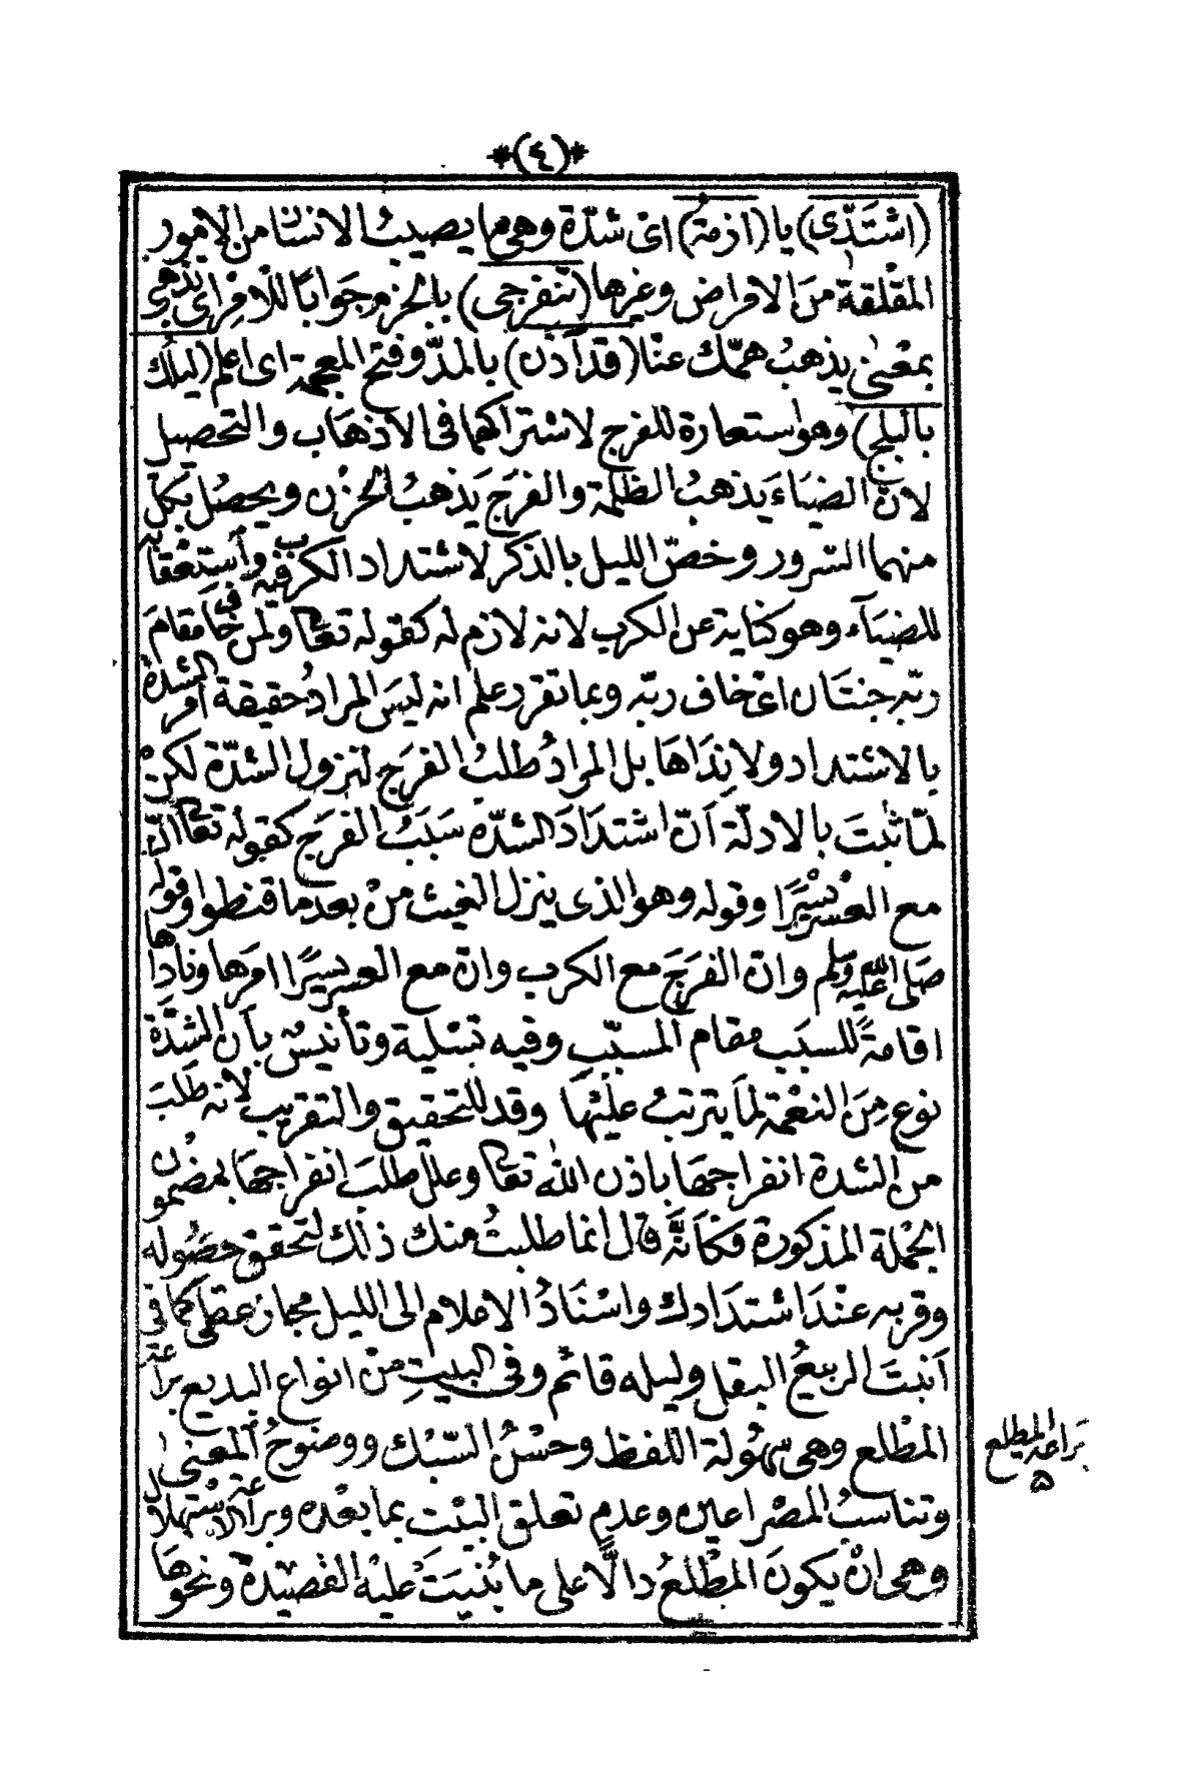 *(٤)*
(اشْتَدّى) يا (ازمةُ) اىْ شدّة وهى ما يصيبُ الانسان من الامور
المقْلقة منَ الامراض وغيرها (تنفرجى) بالجزم جوابًا للأمر اى تذهبى
بمعْنى يذهبُ همّك عنّا (قد آذن) بالمدّ وفتح المعجمة اى اعلم (ليلُك
بالبلج) وهو استعارة للفرج لاشتراكهما فى الاذهاب والتحصيل
لانّ الضياءَ يذهبُ الظلمة والفرَجَ يَذهبُ الحزْن ويحصُل بكلّ
منهما السّرور وخصّ الليل بالذكر لاشتداد الكرب فيه واستعْقابه
للضيَآء وهو كناية عن الكرب لانه لازم له كقوله تعالى ولمن خاف مقامَ
ربّه جنتَان اىْ خاف ربّه وبما تقرر علم انه ليسَ المرادُ حقيقة أمر الشدة
بالاشتداد ولا نِدَاها بل المرادُ طلبُ الفرَج لنزول الشدّة لكنْ
لمّا ثبتَ بالادلّة اَنّ اشتدَادَ الشدّة سَبَبُ الفرَج كقوله تعالى انّ
مع العسْر يسْرًا وقوله وهو الذى ينزل الغيث منْ بعد ما قنطوا وقوله
صَلى الله عليه وسلم وانّ الفرَجَ مع الكرب وانّ مع العسر يسرًا امرَها ونادَاها
اقامةً للسبَب مقام المسبّب وفيه تسْلية وتأنيسٌ بأنّ الشدَّة
نوع مِنَ النعْمة لمَا يترتبُ عليْهَا وقد للتحقيق والتقريب لانه طلبَ
من الشدة انفراجهَا باذن الله تعالى وعلّل طلبَ انفراجهَا بمضمون
الجمْلة المذكورة فكَأنَّهُ قال انما طلبتُ منك ذلك لتحقق حصُوله
وقربه عنْدَ اشتدَادك واسْنَادُ الاعلام الى الليل مجاز عقلىّ كما فى
اَنبتَ الربيعُ البقل وليله قائم وفى البيتِ منْ انواع البديع براعة
المطْلع وهى سهُولة اللفظ وحسْنُ السّبْك ووضوحُ المعنى
وتناسبُ المصْراعين وعدم تعلق البيْت بما بعْده وبراعة الاسْتهلال
وهى انْ يكونَ المطْلعُ دالًّا على ما بُنيَتْ عليْه القصيدة ونحوها
براعة المطلع